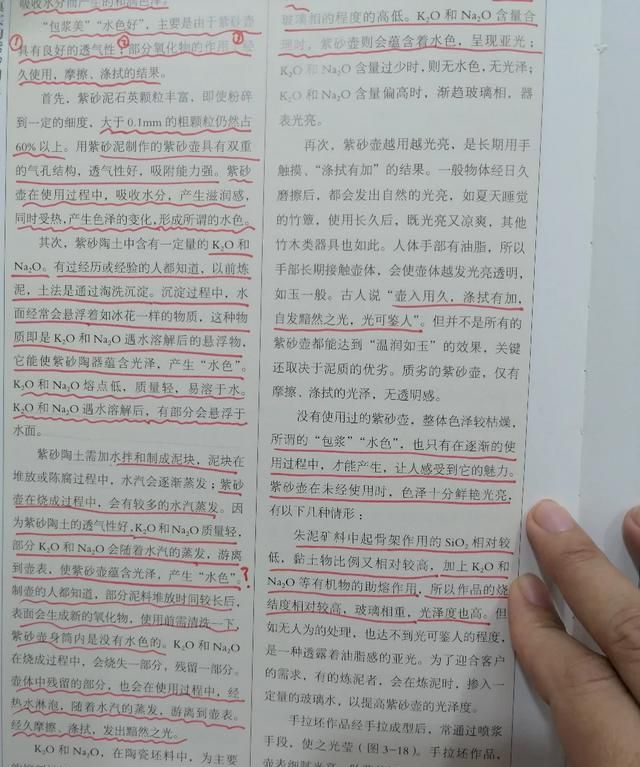 吸收水分而产生的和润色泽。
“包浆美”“水色好”，主要是由于紫砂壶
①具有良好的透气性；②部分氧化物的作用；③经
久使用，摩擦、涤拭的结果。
首先，紫砂泥石英颗粒丰富，即使粉碎
到一定的细度，大于0.1mm的粗颗粒仍然占
60%以上。用紫砂泥制作的紫砂壶具有双重
的气孔结构，透气性好，吸附能力强。紫砂
壶在使用过程中，吸收水分，产生滋润感，
同时受热，产生色泽的变化，形成所谓的水色。
其次，紫砂陶土中含有一定量的K₂O和
Na₂O。有过经历或经验的人都知道，以前炼
泥，土法是通过淘洗沉淀。沉淀过程中，水
面经常会悬浮着如冰花一样的物质，这种物
质即是K₂O和Na₂O遇水溶解后的悬浮物，
它能使紫砂陶器蕴含光泽，产生“水色”。
K₂O和Na₂O熔点低，质量轻，易溶于水。
K₂O和Na₂O遇水溶解后，有部分会悬浮于
水面。
紫砂陶土需加水拌和制成泥块，泥块在
堆放或陈腐过程中，水汽会逐渐蒸发；紫砂
壶在烧成过程中，会有较多的水汽蒸发。因
为紫砂陶土的透气性好，K₂O和Na₂O质量轻，
部分K₂O和Na₂O会随着水汽的蒸发，游离
到壶表，使紫砂壶蕴含光泽，产生“水色”。?
制壶的人都知道，部分泥料堆放时间较长后，
表面会生成新的氧化物，使用前需清洗一下，
紫砂壶身筒内是没有水色的。K₂O和Na₂O
在烧成过程中，会烧失一部分，残留一部分。
壶体中残留的部分，也会在使用过程中，经
热水淋泡，随着水汽的蒸发，游离到壶表。
经久摩擦、涤拭，发出黯然之光。
K₂O和Na₂O，在陶瓷坯料中，为主要
玻璃相的程度的高低。K₂O和Na₂O含量合
理时，紫砂壶则会蕴含着水色，呈现亚光；
K₂O和Na₂O含量过少时，则无水色，无光泽；
K₂O和Na₂O含量偏高时，渐趋玻璃相，器
表光亮。
再次，紫砂壶越用越光亮，是长期用手
触摸、“涤拭有加”的结果。一般物体经日久
磨擦后，都会发出自然的光亮，如夏天睡觉
的竹簟，使用长久后，既光亮又凉爽，其他
竹木类器具也如此。人体手部有油脂，所以
手部长期接触壶体，会使壶体越发光亮透明，
如玉一般。古人说“壶入用久，涤拭有加，
自发黯然之光，光可鉴人”。但并不是所有的
紫砂壶都能达到“温润如玉”的效果，关键
还取决于泥质的优劣。质劣的紫砂壶，仅有
摩擦、涤拭的光泽，无透明感。
没有使用过的紫砂壶，整体色泽较枯燥，
所谓的“包浆”“水色”，也只有在逐渐的使
用过程中，才能产生，让人感受到它的魅力。
紫砂壶在未经使用时，色泽十分鲜艳光亮，
有以下几种情形：
朱泥矿料中起骨架作用的SiO₂相对较
低，黏土物比例又相对较高，加上K₂O和
Na₂O等有机物的助熔作用，所以作品的烧
结度相对较高，玻璃相重，光泽度也高。但
如无人为的处理，也达不到光可鉴人的程度，
是一种透露着油脂感的亚光。为了迎合客户
的需求，有的炼泥者，会在炼泥时，掺入一
定量的玻璃水，以提高紫砂壶的光泽度。
手拉坯作品经手拉成型后，常通过喷浆
手段，使之光莹（图3-18）。手拉坯作品，